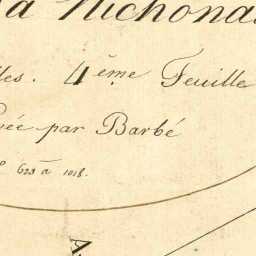 la Nichona
les. 4ème Feuille
née par Barbé
623 à 1018.
A